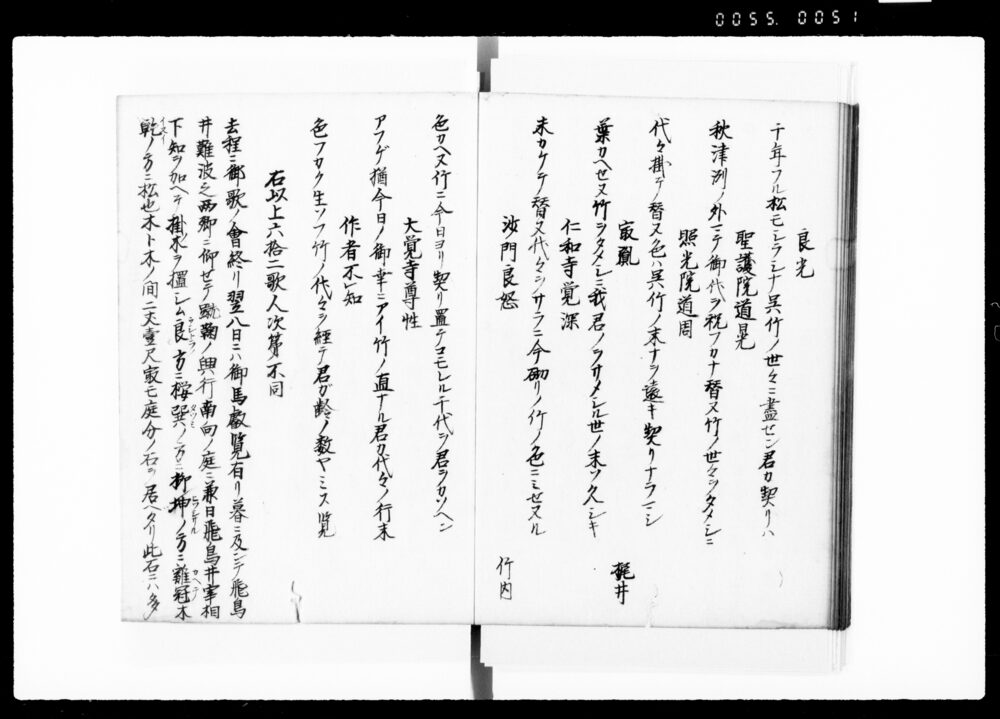 0055. 0051
良光
千年フル松モシラシナ呉竹ノ世々ニ盡せン君カ契リハ
聖護院道晃
秋津洲ノ外マテ御代ヲ祝フカナ替ヌ竹ノ世々ヲタメシニ
照光院道周
代々掛テ替ヌ色ハ呉竹ノ末ナヲ遠キ契リナラマシ
㝡胤 梶井
葉カヘせヌ竹ヲタメシニ我君ノヲサメシ世ノ末ソ久シキ
仁和寺覚深
末カケテ替ヌ代々ヲサラニ今砌リノ竹ノ色ニミせヌル
沙門良恕 竹内
色カヘヌ竹ニ今日ヨリ契リ置テコモレル千代ヲ君ヲカソヘン
大覚寺尊性
アフゲ猶今日ノ御幸ニアイ竹ノ直ナル君カ代々ノ行末
作者不知
色フカク生ソフ竹ノ代々ヲ経テ君ガ齢ノ数ヤミス覧
右以上六拾二歌人次第不同
去程ニ御歌ノ會終リ翌八日ニハ御馬叡覧有リ暮ニ及ンテ飛鳥
井難波之両郷ニ仰せテ蹴鞠ノ興行南向ノ庭ニ兼日飛鳥井宰相
下知ヲ加ヘテ掛木ヲ植シム艮方ニ桜巽ノ方ニ柳坤ノ方ニ雞冠木
乾ノ方ニ松也木ト木ノ間二丈壹尺家モ庭分ノ石ヲ居ヘタリ此石ニハ多